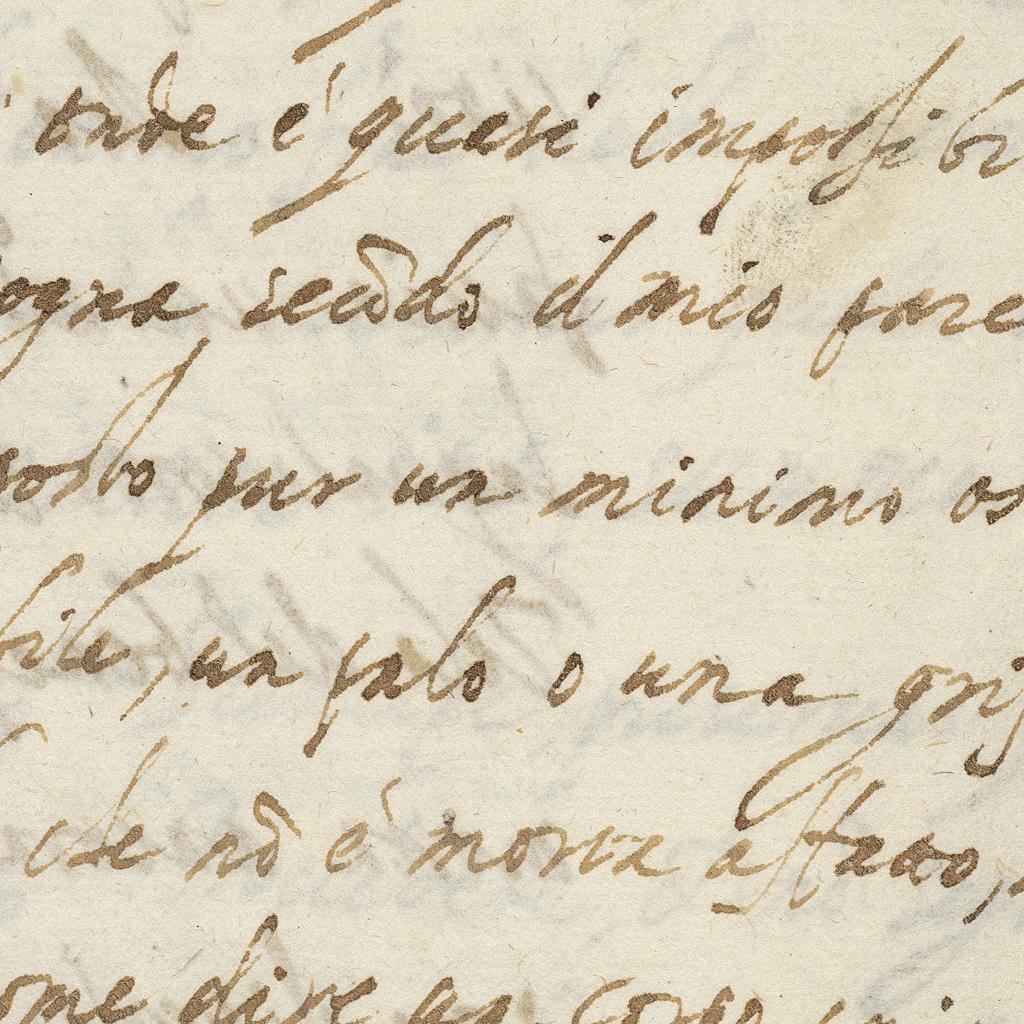 onde è quasi impossibi
ogna secōdo il mio pare
posto pur un minimo os
bile, un palo o una
che nō è morta affatto,
ome dire un corpo